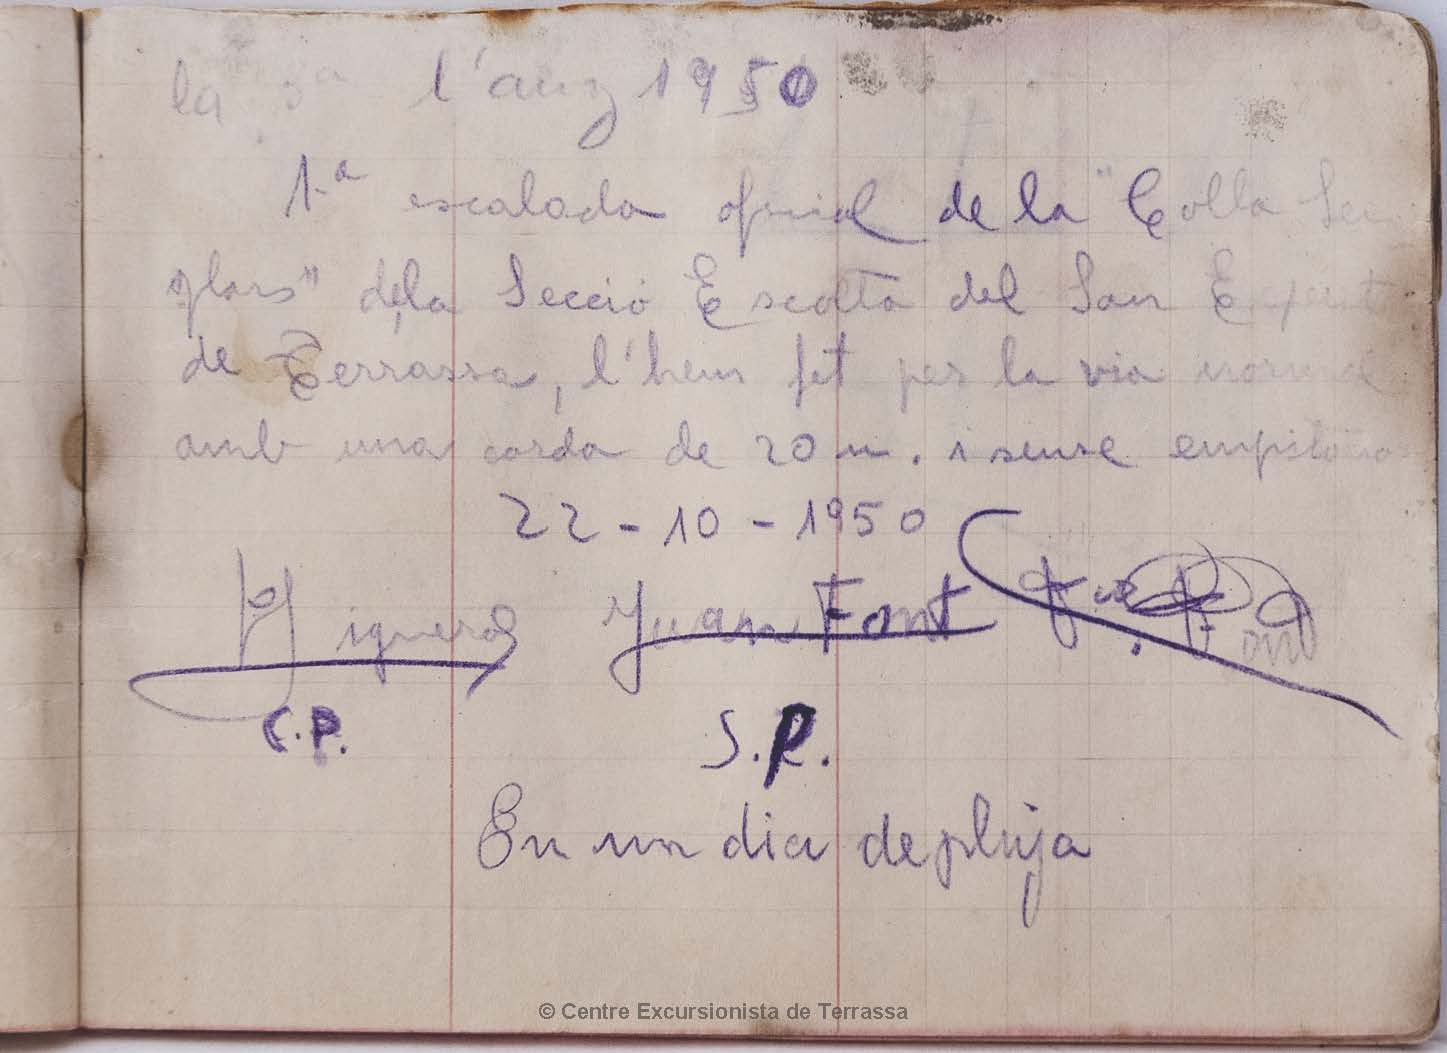 la 3ª l'any 1950
1ª escalada oficial de la "Colla Sen
glars" de la Secció Escolta del San
de Terrassa, l'hem fet per la via normal
amb una corda de 20 m. i sense
22-10-1950
Juan Font Font
C.P. S.P.
En un dia de pluja
© Centre Excursionista de Terrassa